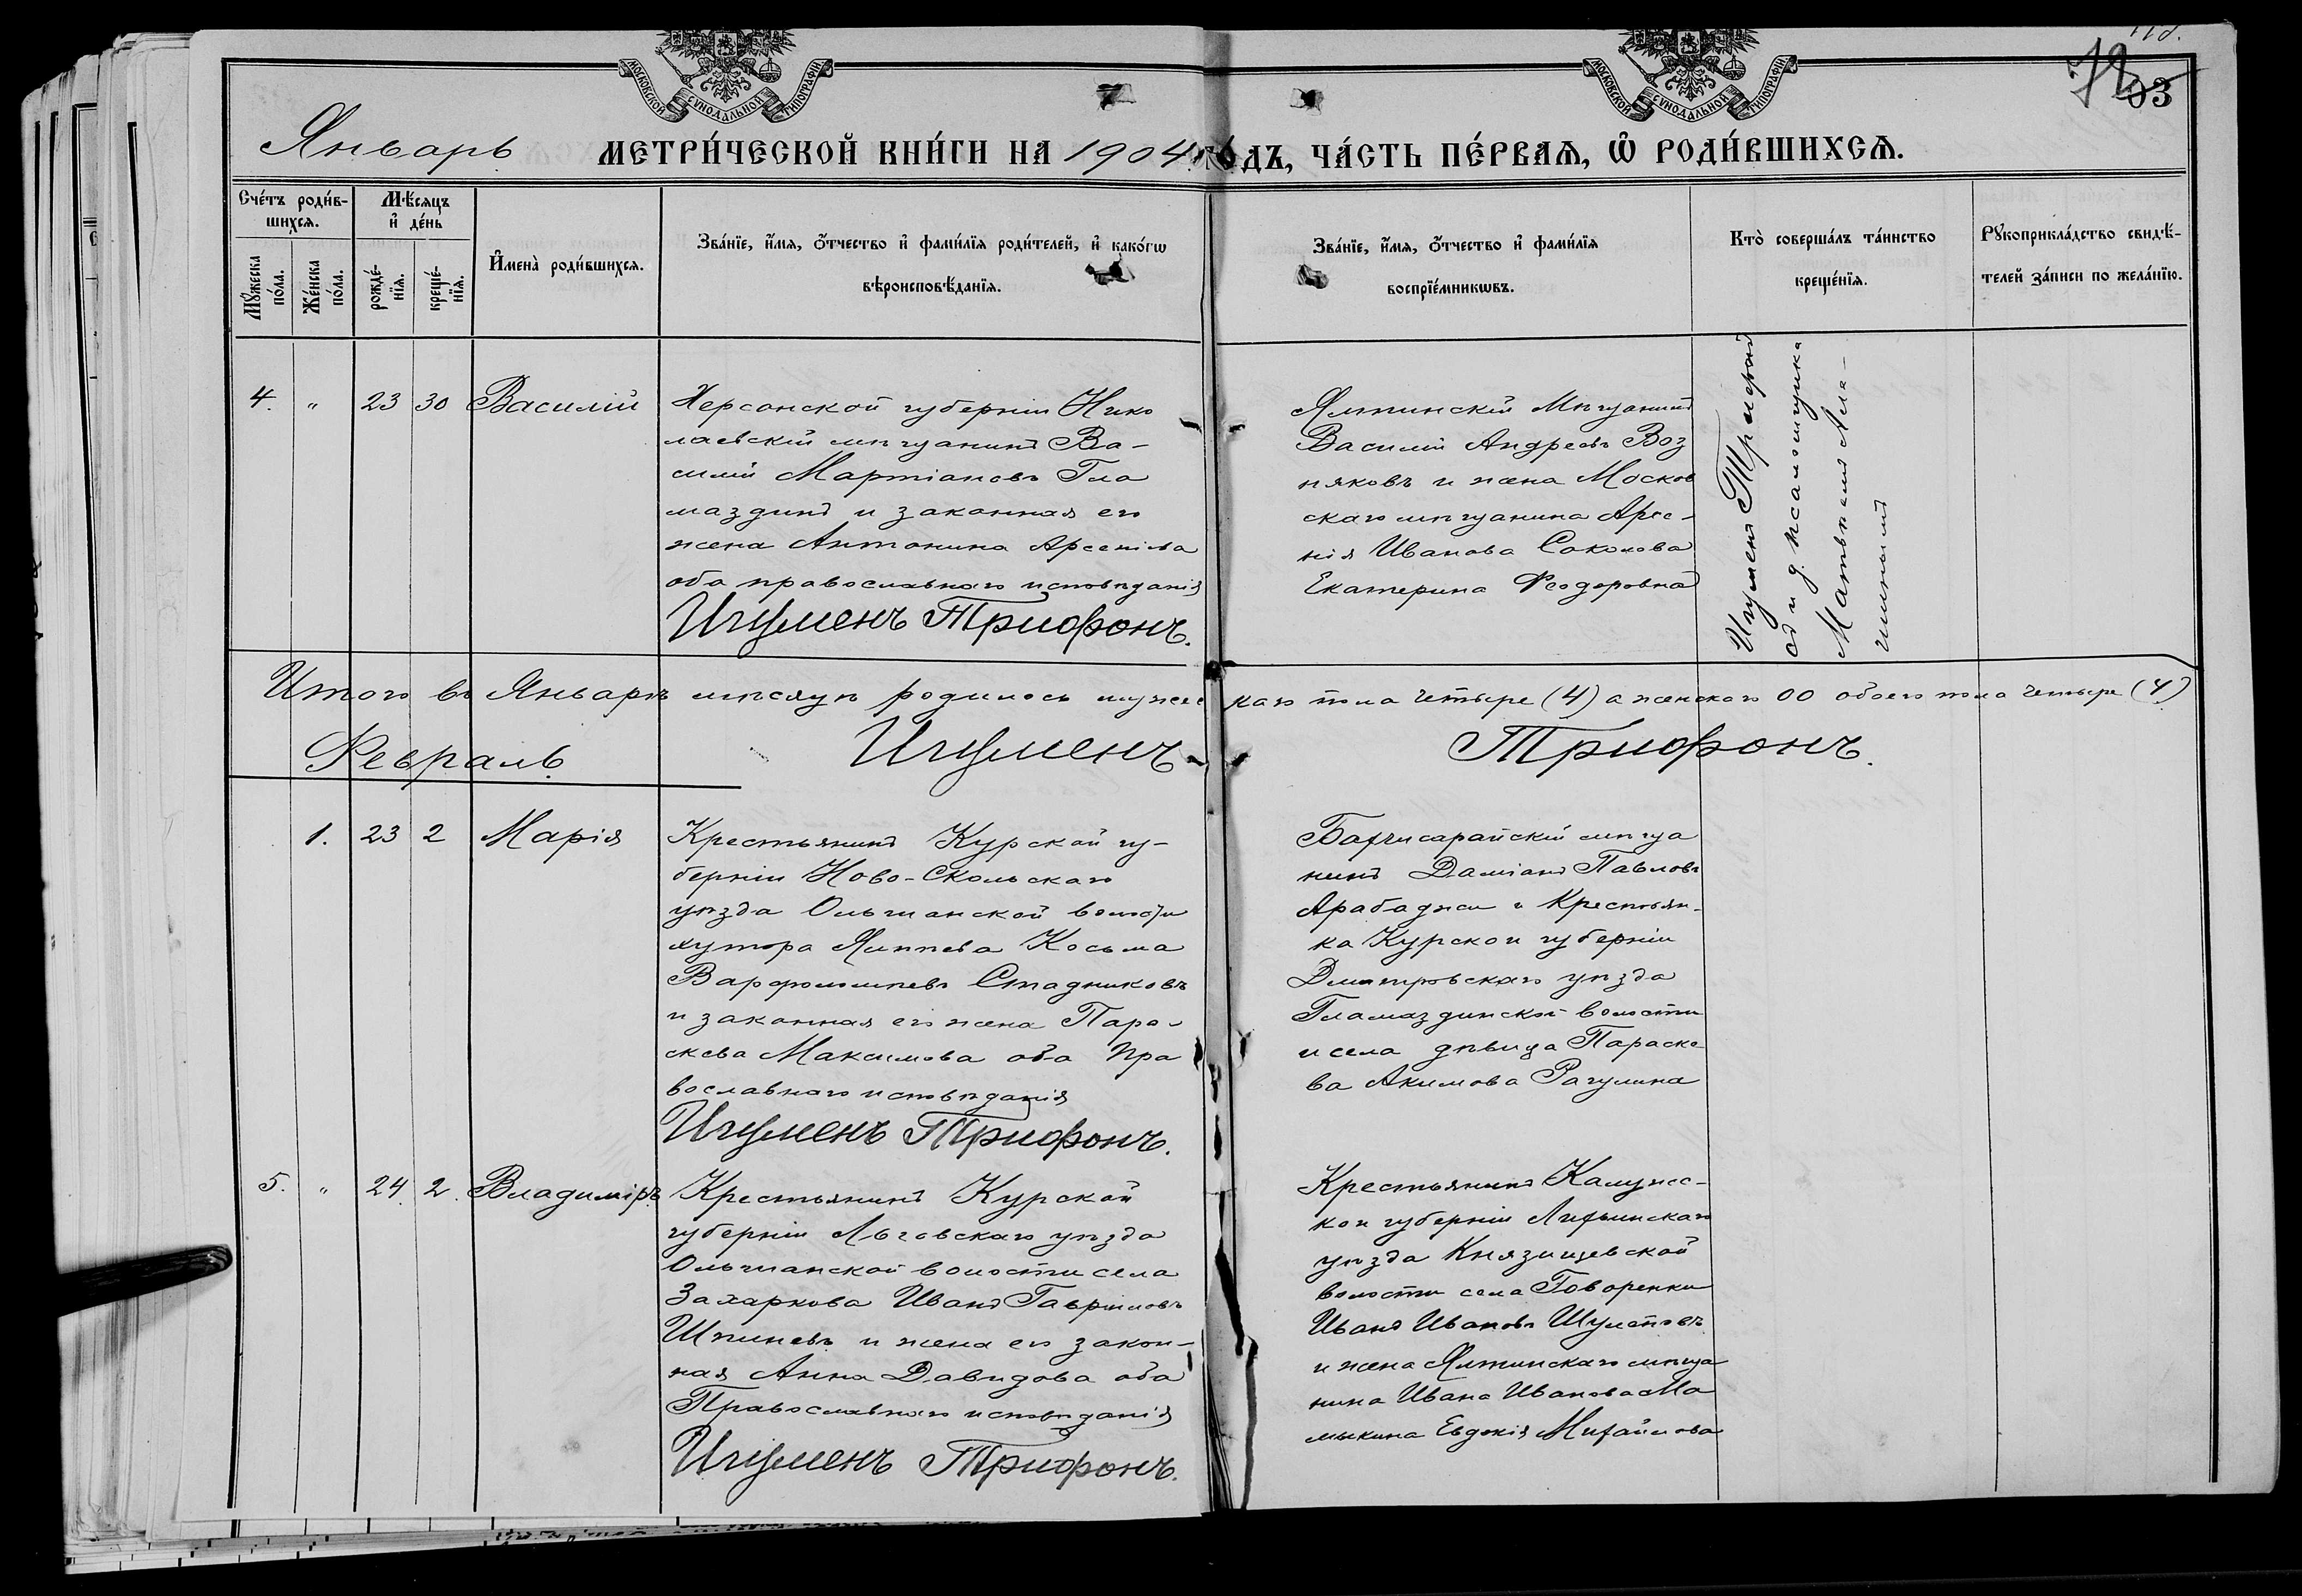 МОСКОВСКОЙ СУНОДАЛЬНОЙ ТИПОГРАФІИ
МОСКОВСКОЙ СУНОДАЛЬНОЙ ТИПОГРАФІИ
03
Январь МЕТРИ́ЧЕСКОЙ КНИ́ГИ НА 1904 го́дъ, ЧА́СТЬ ПЕ́РВАѦ, Ѡ РОДИ́ВШИХСѦ.
Сче́тъ роди́в-
шихсѧ.
Мꙋ́жеска по́ла.
Же́нска по́ла.
Мѣ́сѧцъ и де́нь
рожде́-
нїѧ.
креще́-
нїѧ.
И҆мена̀ роди́вшихсѧ.
Зва́нїе, и҆́мѧ, ѻ҆́тчество и҆ фами́лїѧ роди́телей, и҆ како́гѡ
вѣроисповѣ́данїѧ.
Зва́нїе, и҆́мѧ, ѻ҆́тчество и҆ фами́лїѧ
воспрїе́мникѡвъ.
Кто̀ соверша́лъ та́инство
креще́нїѧ.
Рꙋкоприкла́дство свидѣ́-
телей за́писи по жела́нїю.
4. " 23 30 Василій
Херсонской губерніи Нико
лаевскій мѣщанинъ Ва-
силій Мартіановъ Гла
маздинъ и законная его
жена Антонина Арсеніева
оба православнаго исповѣданія
Игуменъ Трифонъ.
Ялтинскій Мѣщанинъ
Василій Андреевъ Воз
няковъ и жена Москов
скаго мѣщанина Арсе-
нія Иванова Соколова
Екатерина Ѳеодоровна
Игуменъ Трифонъ
съ и д. псаломщика
Матвѣемъ
Итого въ Январѣ мѣсяцѣ родилось мужескаго пола четыре (4) а женскаго 00 обоего пола четыре (4)
Февраль.
Игуменъ Трифонъ.
1. 23 2 Марія
Крестьянинъ Курской гу-
берніи Ново-Скольскаго
уѣзда Ольшанской волости
хутора Косьма
Варфоломеевъ Стадниковъ
и законная его жена Пара-
скева Максимова оба пра
вославнаго исповѣданія
Игуменъ Трифонъ.
Бахчисарайскій мѣща
нинъ Даміанъ Павловъ
Арабаджи и Крестьян-
ка Курской губерніи
Дмитровскаго уѣзда
Гламаздинской волости
и села дѣвица Параске
ва Акимова Рагулина
5. " 24. 2. Владиміръ.
Крестьянинъ Курской
губерніи Льговскаго уѣзда
Ольшанской волости села
Захаркова Иванъ Гавриловъ
и жена его закон-
ная Анна Давидова оба
Православнаго исповѣданія
Игуменъ Трифонъ.
Крестьянинъ Калужс-
кой губерніи Лихвинскаго
уѣзда Князищевской
волости села Говоренки
Иванъ Ивановъ Шумстовъ
и жена Ялтинскаго мѣща
нина Ивана Иванова Ма
мыкина Евдокія Михайлова